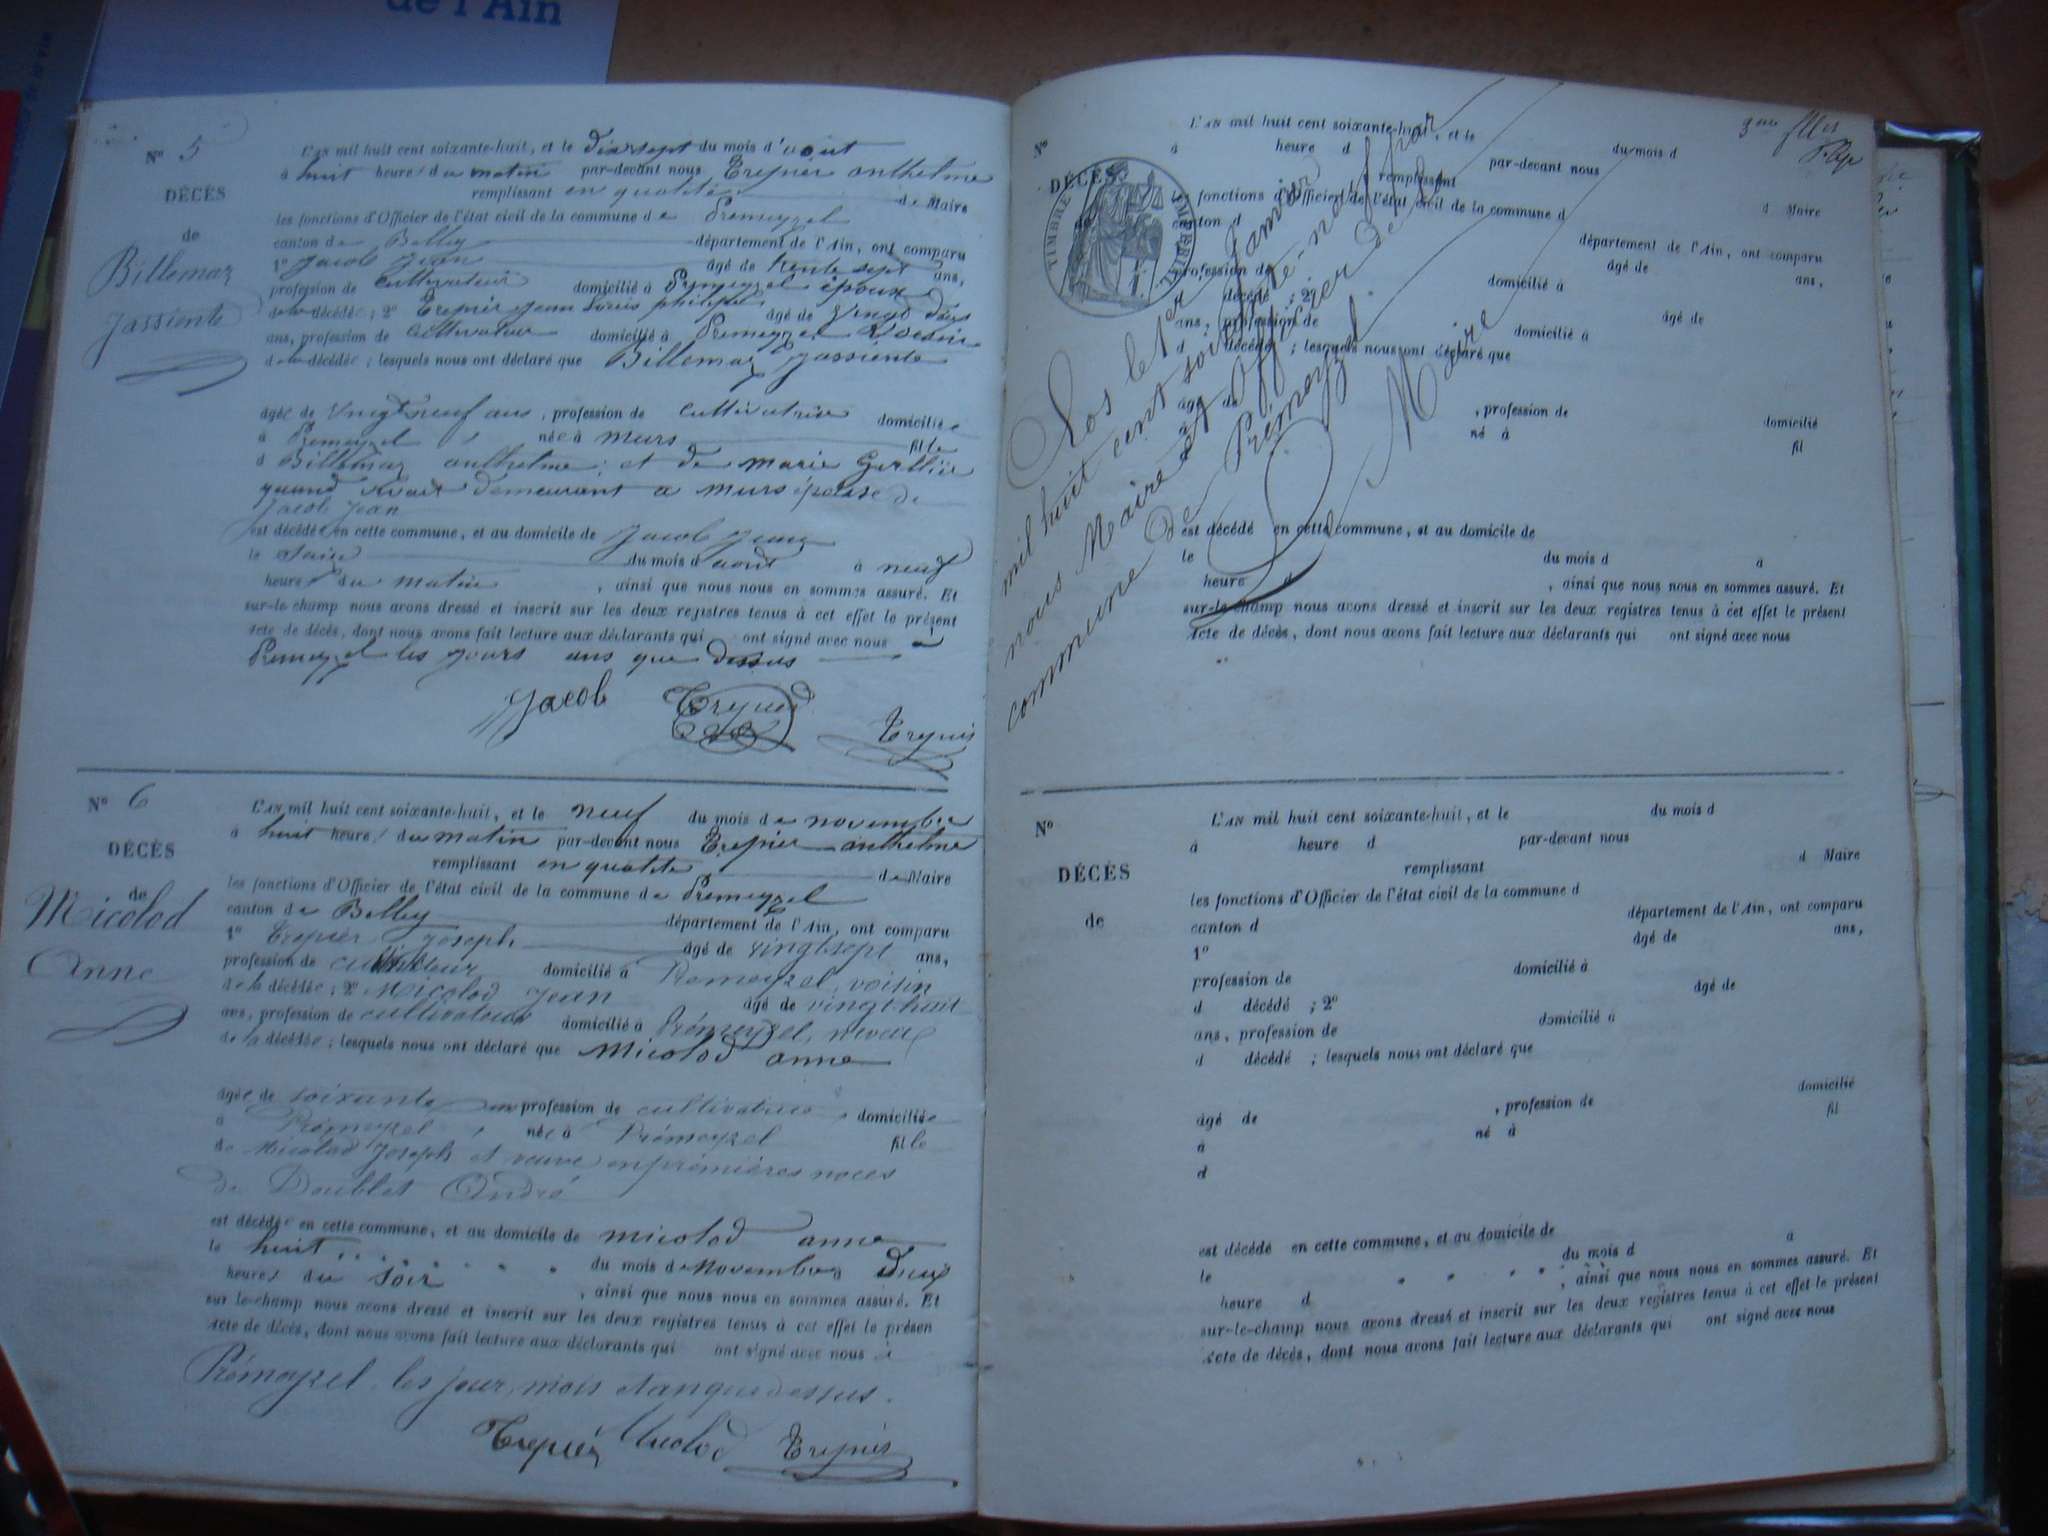 de l'Ain
N° 5
DÉCÈS
de
Billemaz
Jassiente
L'AN mil huit cent soixante-huit, et le dixsept du mois d'août
à huit heures du matin par-devant nous Trepier anthelme
remplissant en qualité de Maire
les fonctions d'Officier de l'état civil de la commune de Premeyzel
canton de Belley département de l'Ain, ont comparu
1° Jacob Jean âgé de trente sept ans,
profession de cultivateur domicilié à Premeyzel époux
de la décédée ; 2° Trepier Jean Louis philippe âgé de vingt
ans, profession de cultivateur domicilié à Premeyzel voisin
de la décédée ; lesquels nous ont déclaré que Billemaz Jassiente
âgée de vingt neuf ans, profession de cultivatrice domiciliée
à Premeyzel, née à murs fille
d Billemaz anthelme ; et de marie
quand vivait demeurant a murs épouse de
Jacob Jean
est décédée en cette commune, et au domicile de Jacob Jean
le du mois d août à neuf
heures du matin, ainsi que nous nous en sommes assuré. Et
sur-le-champ nous avons dressé et inscrit sur les deux registres tenus à cet effet le présent
Acte de décès, dont nous avons fait lecture aux déclarants qui ont signé avec nous à
Premeyzel les jours ans que dessus
Jacob Trepier Trepier
N° 6
DÉCÈS
de
Micolod
Anne
L'AN mil huit cent soixante-huit, et le neuf du mois de novembre
à huit heures du matin par-devant nous Trepier anthelme
remplissant en qualité de Maire
les fonctions d'Officier de l'état civil de la commune de Premeyzel
canton de Belley département de l'Ain, ont comparu
1° Trepier Joseph âgé de vingt sept ans,
profession de cultivateur domicilié à Premeyzel, voisin
de la décédée ; 2° Micolod Jean âgé de vingt-huit
ans, profession de cultivateur domicilié à Prémeyzel, neveu
de la décédée ; lesquels nous ont déclaré que Micolod anne
âgée de soixante ans profession de cultivatrice, domiciliée
à Prémeyzel, née à Prémeyzel fille
de Micolod Joseph et veuve en prémières noces
de Doublet André
est décédée en cette commune, et au domicile de micolod anne
le huit du mois de Novembre à Deux
heures du soir, ainsi que nous nous en sommes assuré. Et
sur-le-champ nous avons dressé et inscrit sur les deux registres tenus à cet effet le présen
Acte de décès, dont nous avons fait lecture aux déclarants qui ont signé avec nous à
Prémeyzel, les jour, mois et an que dessus.
Trepier Micolod Trepier
N°
DÉCÈS
de
TIMBRE IMPÉRIAL
L'AN mil huit cent soixante-huit, et le du mois d
à heure d par-devant nous
remplissant d Maire
les fonctions d'Officier de l'état civil de la commune d
canton d département de l'Ain, ont comparu
âgé de ans,
profession de domicilié à
décédé ; 2° âgé de
ans, profession de domicilié à
d décédé ; lesquels nous ont déclaré que
âgé de, profession de domicilié
à né à fil
est décédé en cette commune, et au domicile de
le du mois d à
heure d, ainsi que nous nous en sommes assuré. Et
sur-le-champ nous avons dressé et inscrit sur les deux registres tenus à cet effet le présent
Acte de décès, dont nous avons fait lecture aux déclarants qui ont signé avec nous
Clos le 1er Janvier
mil huit cent soixante-neuf par
nous Maire et Officier de la
commune de Prémeyzel.
Le Maire
N°
DÉCÈS
de
L'AN mil huit cent soixante-huit, et le du mois d
à heure d par-devant nous
remplissant d Maire
les fonctions d'Officier de l'état civil de la commune d
canton d département de l'Ain, ont comparu
1° âgé de ans,
profession de domicilié à
d décédé ; 2° âgé de
ans, profession de domicilié à
d décédé ; lesquels nous ont déclaré que
âgé de, profession de domicilié
à né à fil
d
est décédé en cette commune, et au domicile de
le du mois d à
heure d, ainsi que nous nous en sommes assuré. Et
sur-le-champ nous avons dressé et inscrit sur les deux registres tenus à cet effet le présent
Acte de décès, dont nous avons fait lecture aux déclarants qui ont signé avec nous